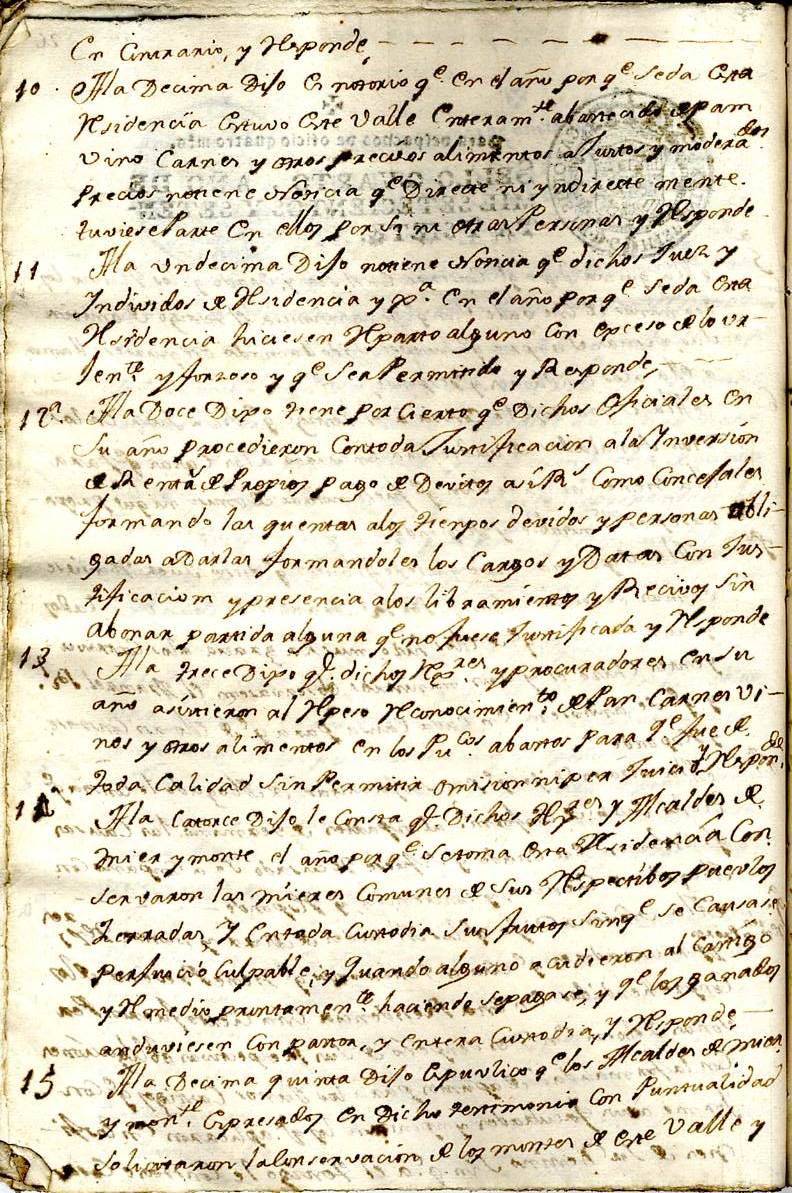 En Contrario, y Responde
10 A la Decima Dijo Es notorio qe. en el año por qe. se da Esta
Residencia Estuvo Este Valle Enteramte. abastecido de pam
vino Carnes y otros precisos alimentos a Justos y modera dos
precios no tiene Noticia qe. Directe ni yndirecte mente.
tuviese Parte En ellos por Si ni otras Personas y Responde
11 A la undecima Dijo no tiene Noticia qe. dichos Juez y
Individos de Residencia y pa. En el año por qe. se da Esta
Residencia hiciesen Reparto alguno con exceso de lo ur-
jente. y forzoso y qe. Sea Permitido y Responde
12 A la Doce Dijo tiene por Cierto qe. Dichos Oficiales En
Su año procedieron Con toda Justificacion a la Inversion
de Rentas de Propios pago de Devitos asi Rs. Como Concejales
formando las quentas a los tienpos devidos y personas obli-
gadas a Darlas formandoles los Cargos y Datas Con Jus-
tificaciom y presencia a los libramientos y Recivos Sin
abonar partida alguna qe. no fuese Justificada y Responde
13 A la trece Dijo qe. dichos Rexres. y procuradores en su
año asistieron al Repeso Reconocimiento. de Pan Carnes Vi-
nos y otros alimentos en los Pucos. abastos para qe. fue de
toda Calidad Sin Permitir omision ni per Juicio y Respon de
14 A la Catorce Dijo le Consta qe. Dichos Rexres. y Alcaldes de
mier y monte el año por qe. se toma Esta Residencia Con
servaron las mieses Comunes de Sus Respectibos Pueblos
Zerradas, y En toda Custodia Sus frutos Sin qe. se Causase
perjuicio Culpable, y quando alguno acudieron al Castigo
y Remedio prontamente. haciendo se pagase, y qe. los ganados
anduviesen Con pastor, y Entera Custodia, y Responde
15 A la Decima quinta Dijo Es publico qe. los Alcaldes de mier
y monte. Expresados En Dicho testimonio Con Puntualidad
Solicitaron la Conservacion de los montes de Este Valle y